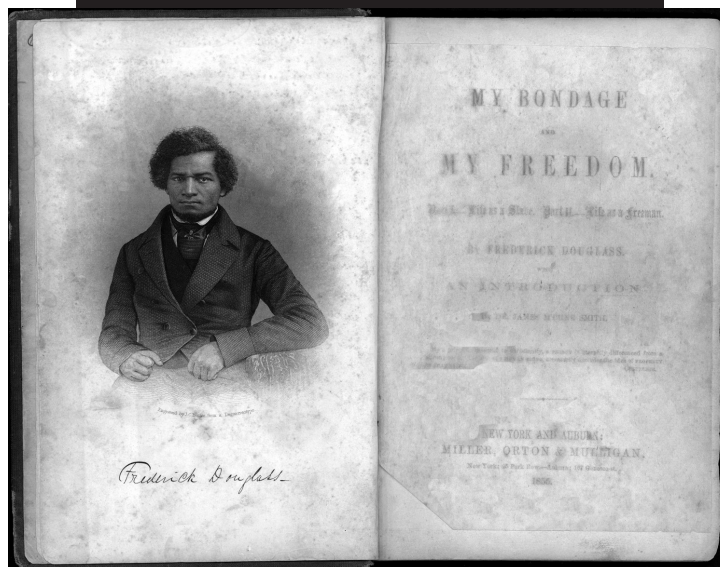 Engraved by J. C. Buttre from a Daguerreotype
Frederick Douglass
MY BONDAGE
AND
MY FREEDOM.
Part I.—Life as a Slave. Part II.—Life as a Freeman.
By FREDERICK DOUGLASS.
WITH
AN INTRODUCTION.
By DR. JAMES M'CUNE SMITH.
NEW YORK AND AUBURN:
MILLER, ORTON & MULLIGAN.
New York: 25 Park Row.—Auburn: 107 Genesee-st.
1855.